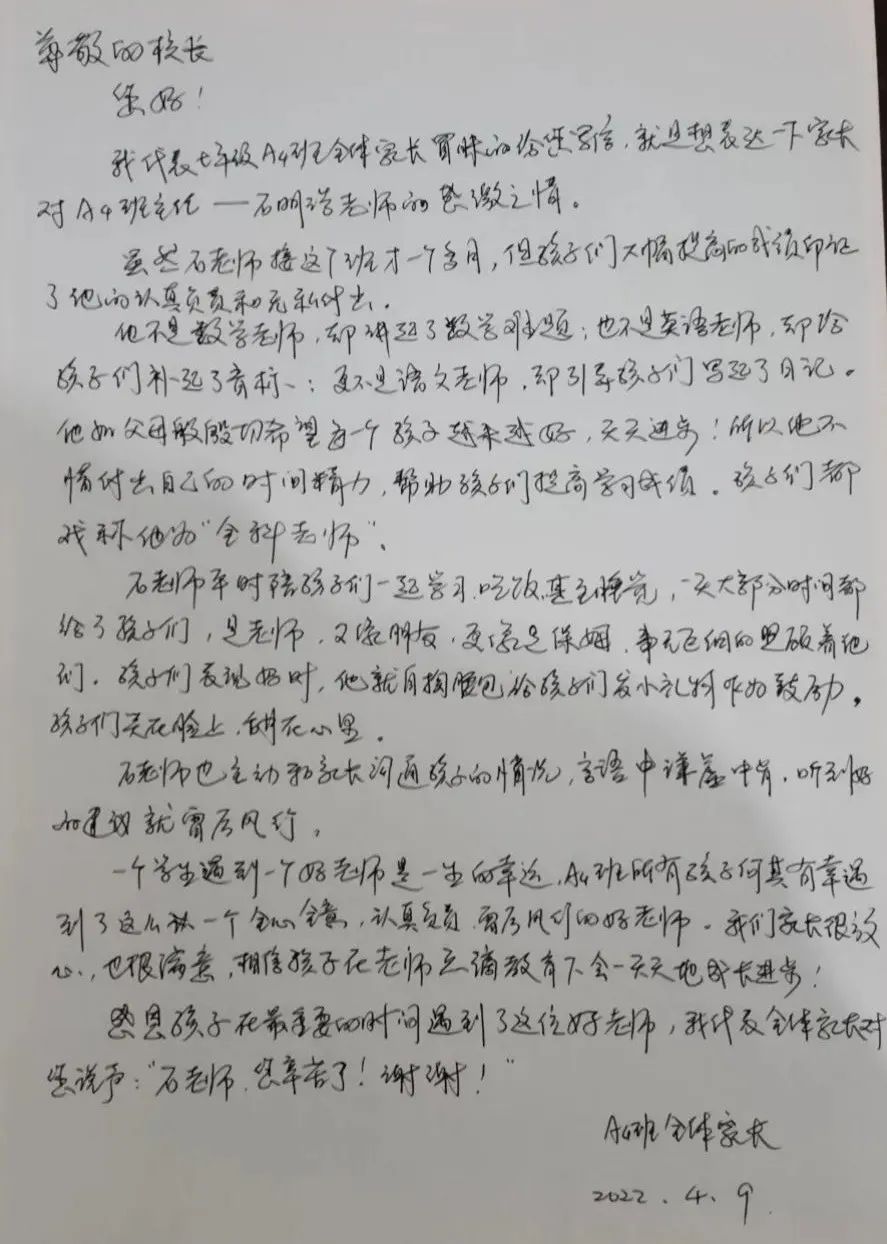 尊敬的校长
您好！
我代表七年级A4班全体家长冒昧的给您写信，就是想表达一下家长
对A4班主任——石明学老师的感激之情。
虽然石老师接这个班才一个多月，但孩子们大幅提高的成绩印证
了他的认真负责和无私付出。
他不是数学老师，却讲起了数学难题；也不是英语老师，却给
孩子们补起了音标；更不是语文老师，却引导孩子们写起了日记。
他如父母般殷切希望每一个孩子越来越好，天天进步！所以他不
惜付出自己的时间精力，帮助孩子们提高学习成绩。孩子们都
戏称他为“全科老师”。
石老师平时陪孩子们一起学习、吃饭、甚至睡觉，一天大部分时间都
给了孩子们，是老师，又像朋友，更像是保姆，事无巨细的照顾着他
们。孩子们表现好时，他就自掏腰包给孩子们发小礼物作为鼓励，
孩子们笑在脸上，甜在心里。
石老师也主动和家长沟通孩子的情况，言语中谦虚中肯，听到好
的建议就雷厉风行。
一个学生遇到一个好老师是一生的幸运，A4班所有孩子何其有幸遇
到了这么一个全心全意，认真负责，雷厉风行的好老师。我们家长很放
心，也很满意，相信孩子在老师谆谆教育下会一天天地成长进步！
感恩孩子在最重要的时间遇到了这位好老师，我代表全体家长对
您说声：“石老师，您辛苦了！谢谢！”
A4班全体家长
2022.4.9